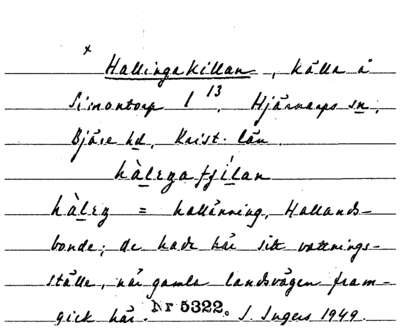 × Hallingakillan, källa å
Simontorp 1 13. Hjärnarps sn,
Bjäre hd, Krist. län.
hàleŋafjílan
hàleŋ = hallänning, Hallands-
bonde; de hade här sitt vattnings-
ställe, när gamla landsvägen fram-
gick här. Nr 5322. J. Ingers 1949.